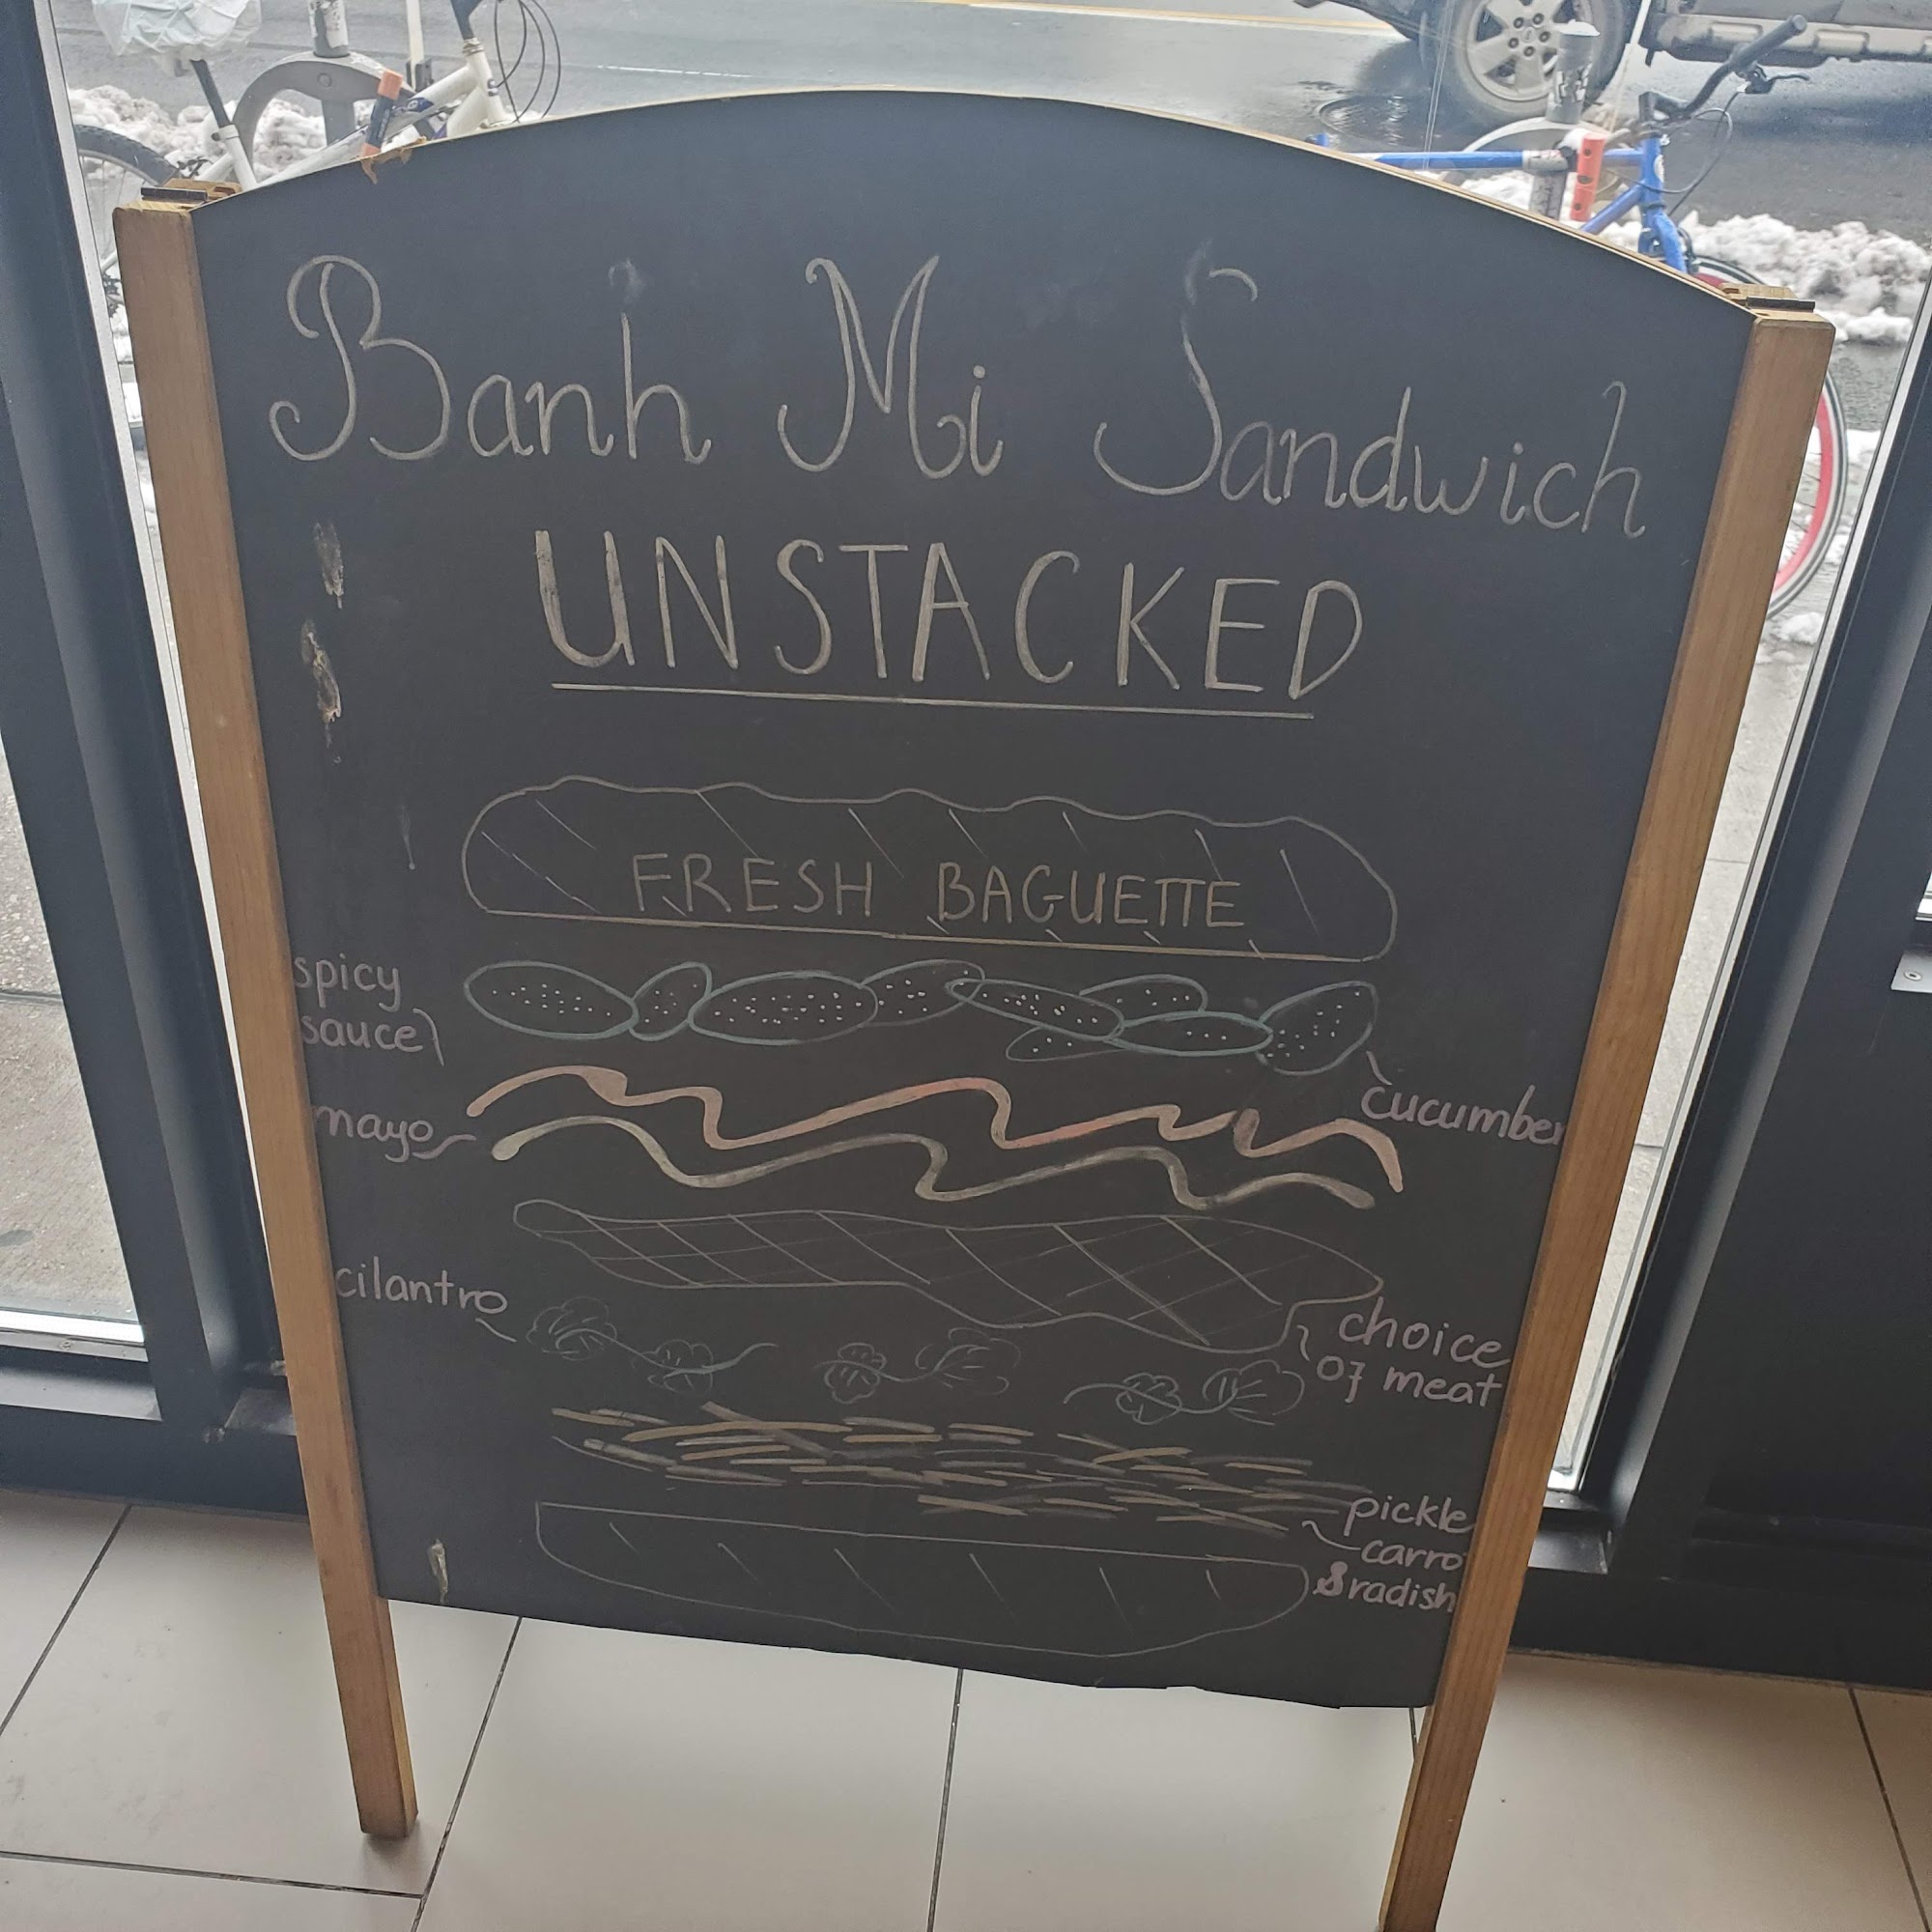 Banh Mi Sandwich
UNSTACKED
FRESH BAGUETTE
spicy
sauce
cucumber
mayo
cilantro
choice
of meat
pickle
carro
& radish